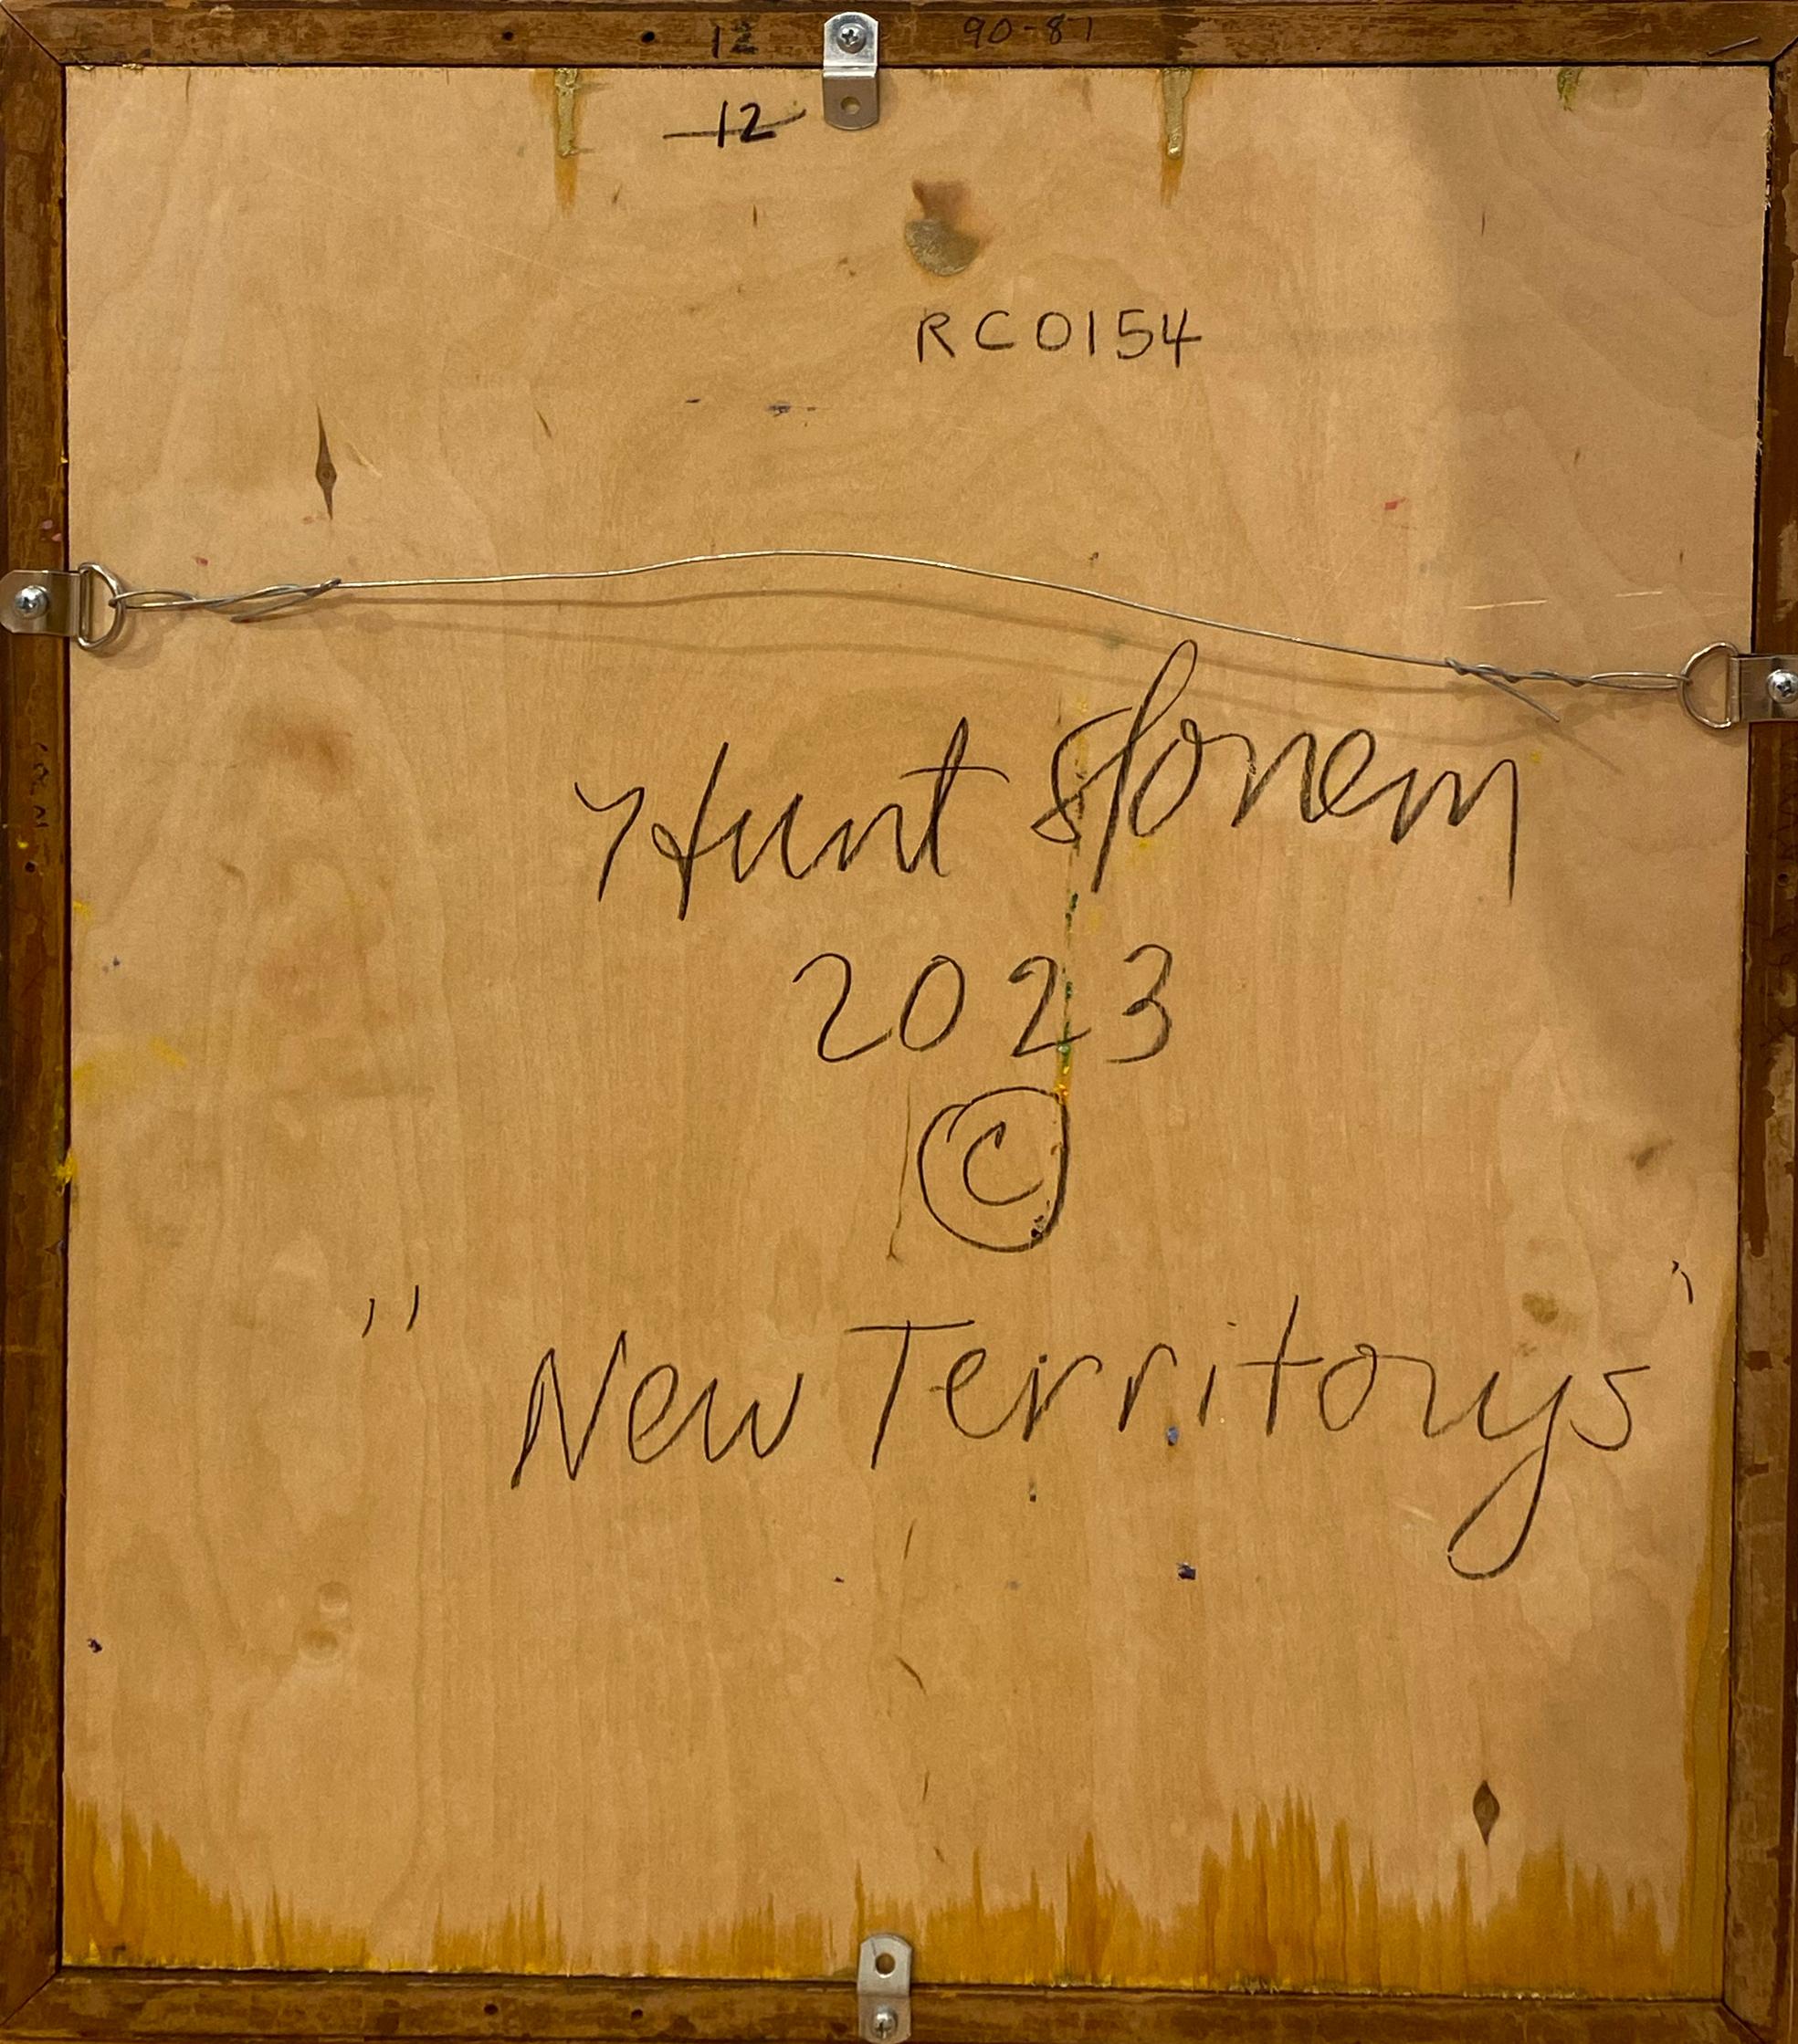 12 90-81
12
RC0154
Hunt Slonem
2023
©
"New Territorys"